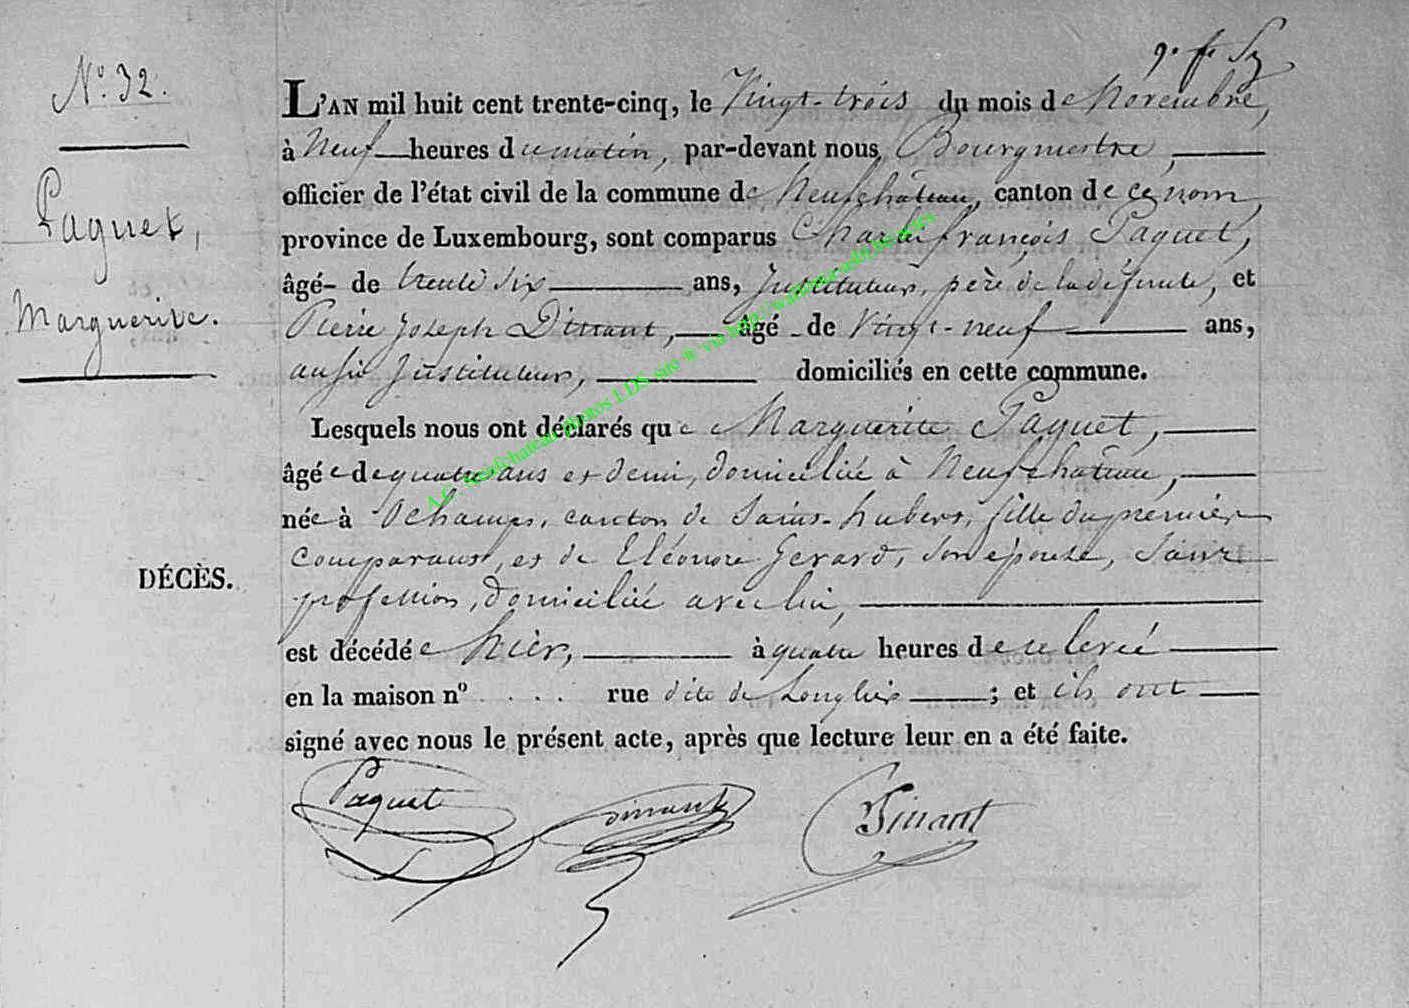 N° 32.
Paquet,
Marguerite.
DÉCÈS.
L'AN mil huit cent trente-cinq, le Vingt-trois du mois de Novembre,
à Neuf heures du matin, par-devant nous, Bourgmestre,
officier de l'état civil de la commune de Neufchâteau, canton de ce nom,
province de Luxembourg, sont comparus Charles françois Paquet,
âgé- de trente six ans, Instituteur, père de la défunte, et
Pierre Joseph Dinant, âgé - de Vingt-neuf ans,
aussi Instituteur, domiciliés en cette commune.
Lesquels nous ont déclarés que Marguerite Paquet,
âgée de quatre ans et demi, domiciliée à Neufchâteau,
née à Ochamps, canton de Saint-hubert, fille du premier
comparant, et de Eléonore Gerard, son épouse, sans
profession, domiciliée avec lui,
est décédée hier, à quatre heures de relevée
en la maison n° . . . . rue dite de Longlier ; et ils ont
signé avec nous le présent acte, après que lecture leur en a été faite.
Paquet Dinant Dinant
A.C. Neufchateau photos LDS site ® via http://wallonia-asbl.be/actes